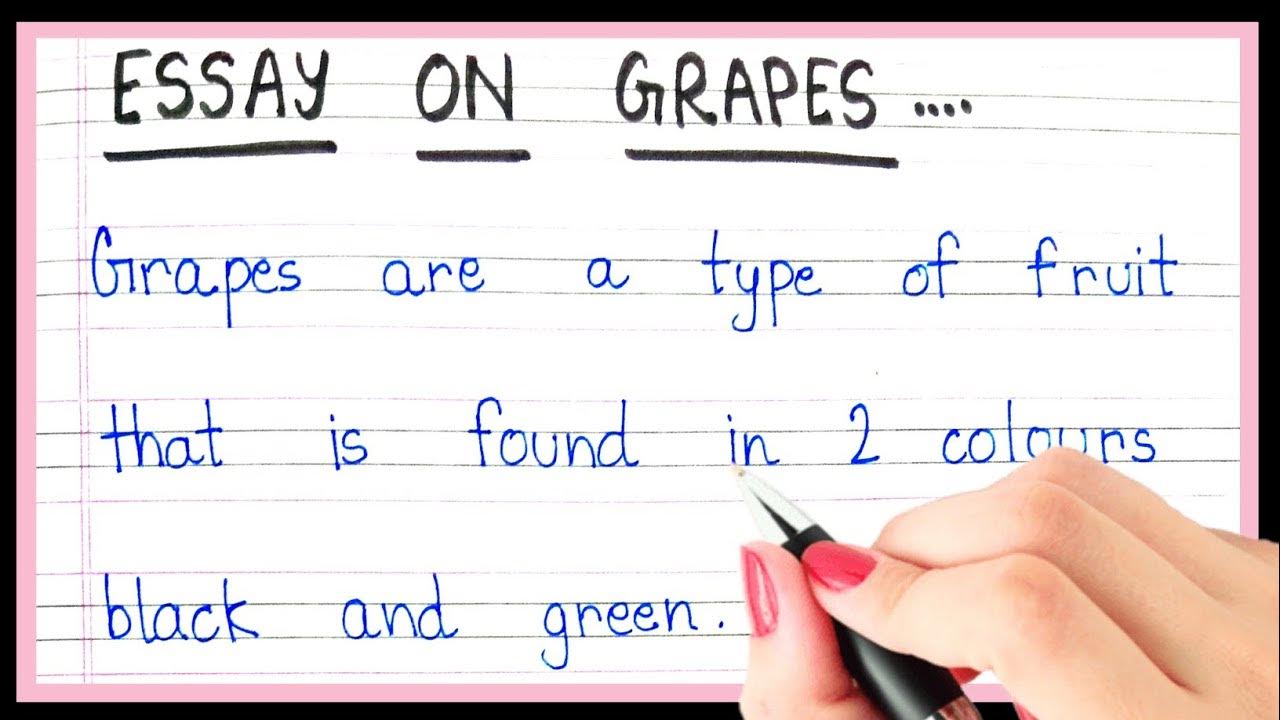 ESSAY ON GRAPES....
Grapes are a type of fruit
that is found in 2 colours
black and green.